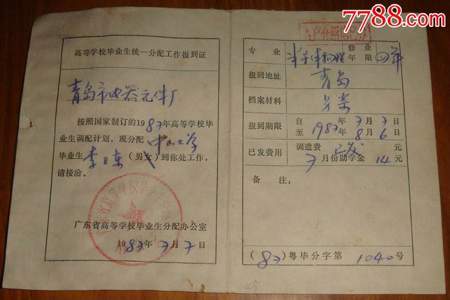 7788.com
高等学校毕业生统一分配工作报到证
青岛市电器元件厂
按照国家制订的1983年高等学校毕
业生调配计划，现分配中山大学
毕业生李 东（男 女）到你处工作，
请接洽。
广东省高等学校毕业生分配办公室
1983年7月7日
专业 半导体物理 修业年限 四年
报到地址 青岛
档案材料
报到期限 自 7月7日
至 1983年8月6日
已发费用 调遣费 已发 元
7月份助学金 14 元
备注：
（83）粤毕分字第 1040 号